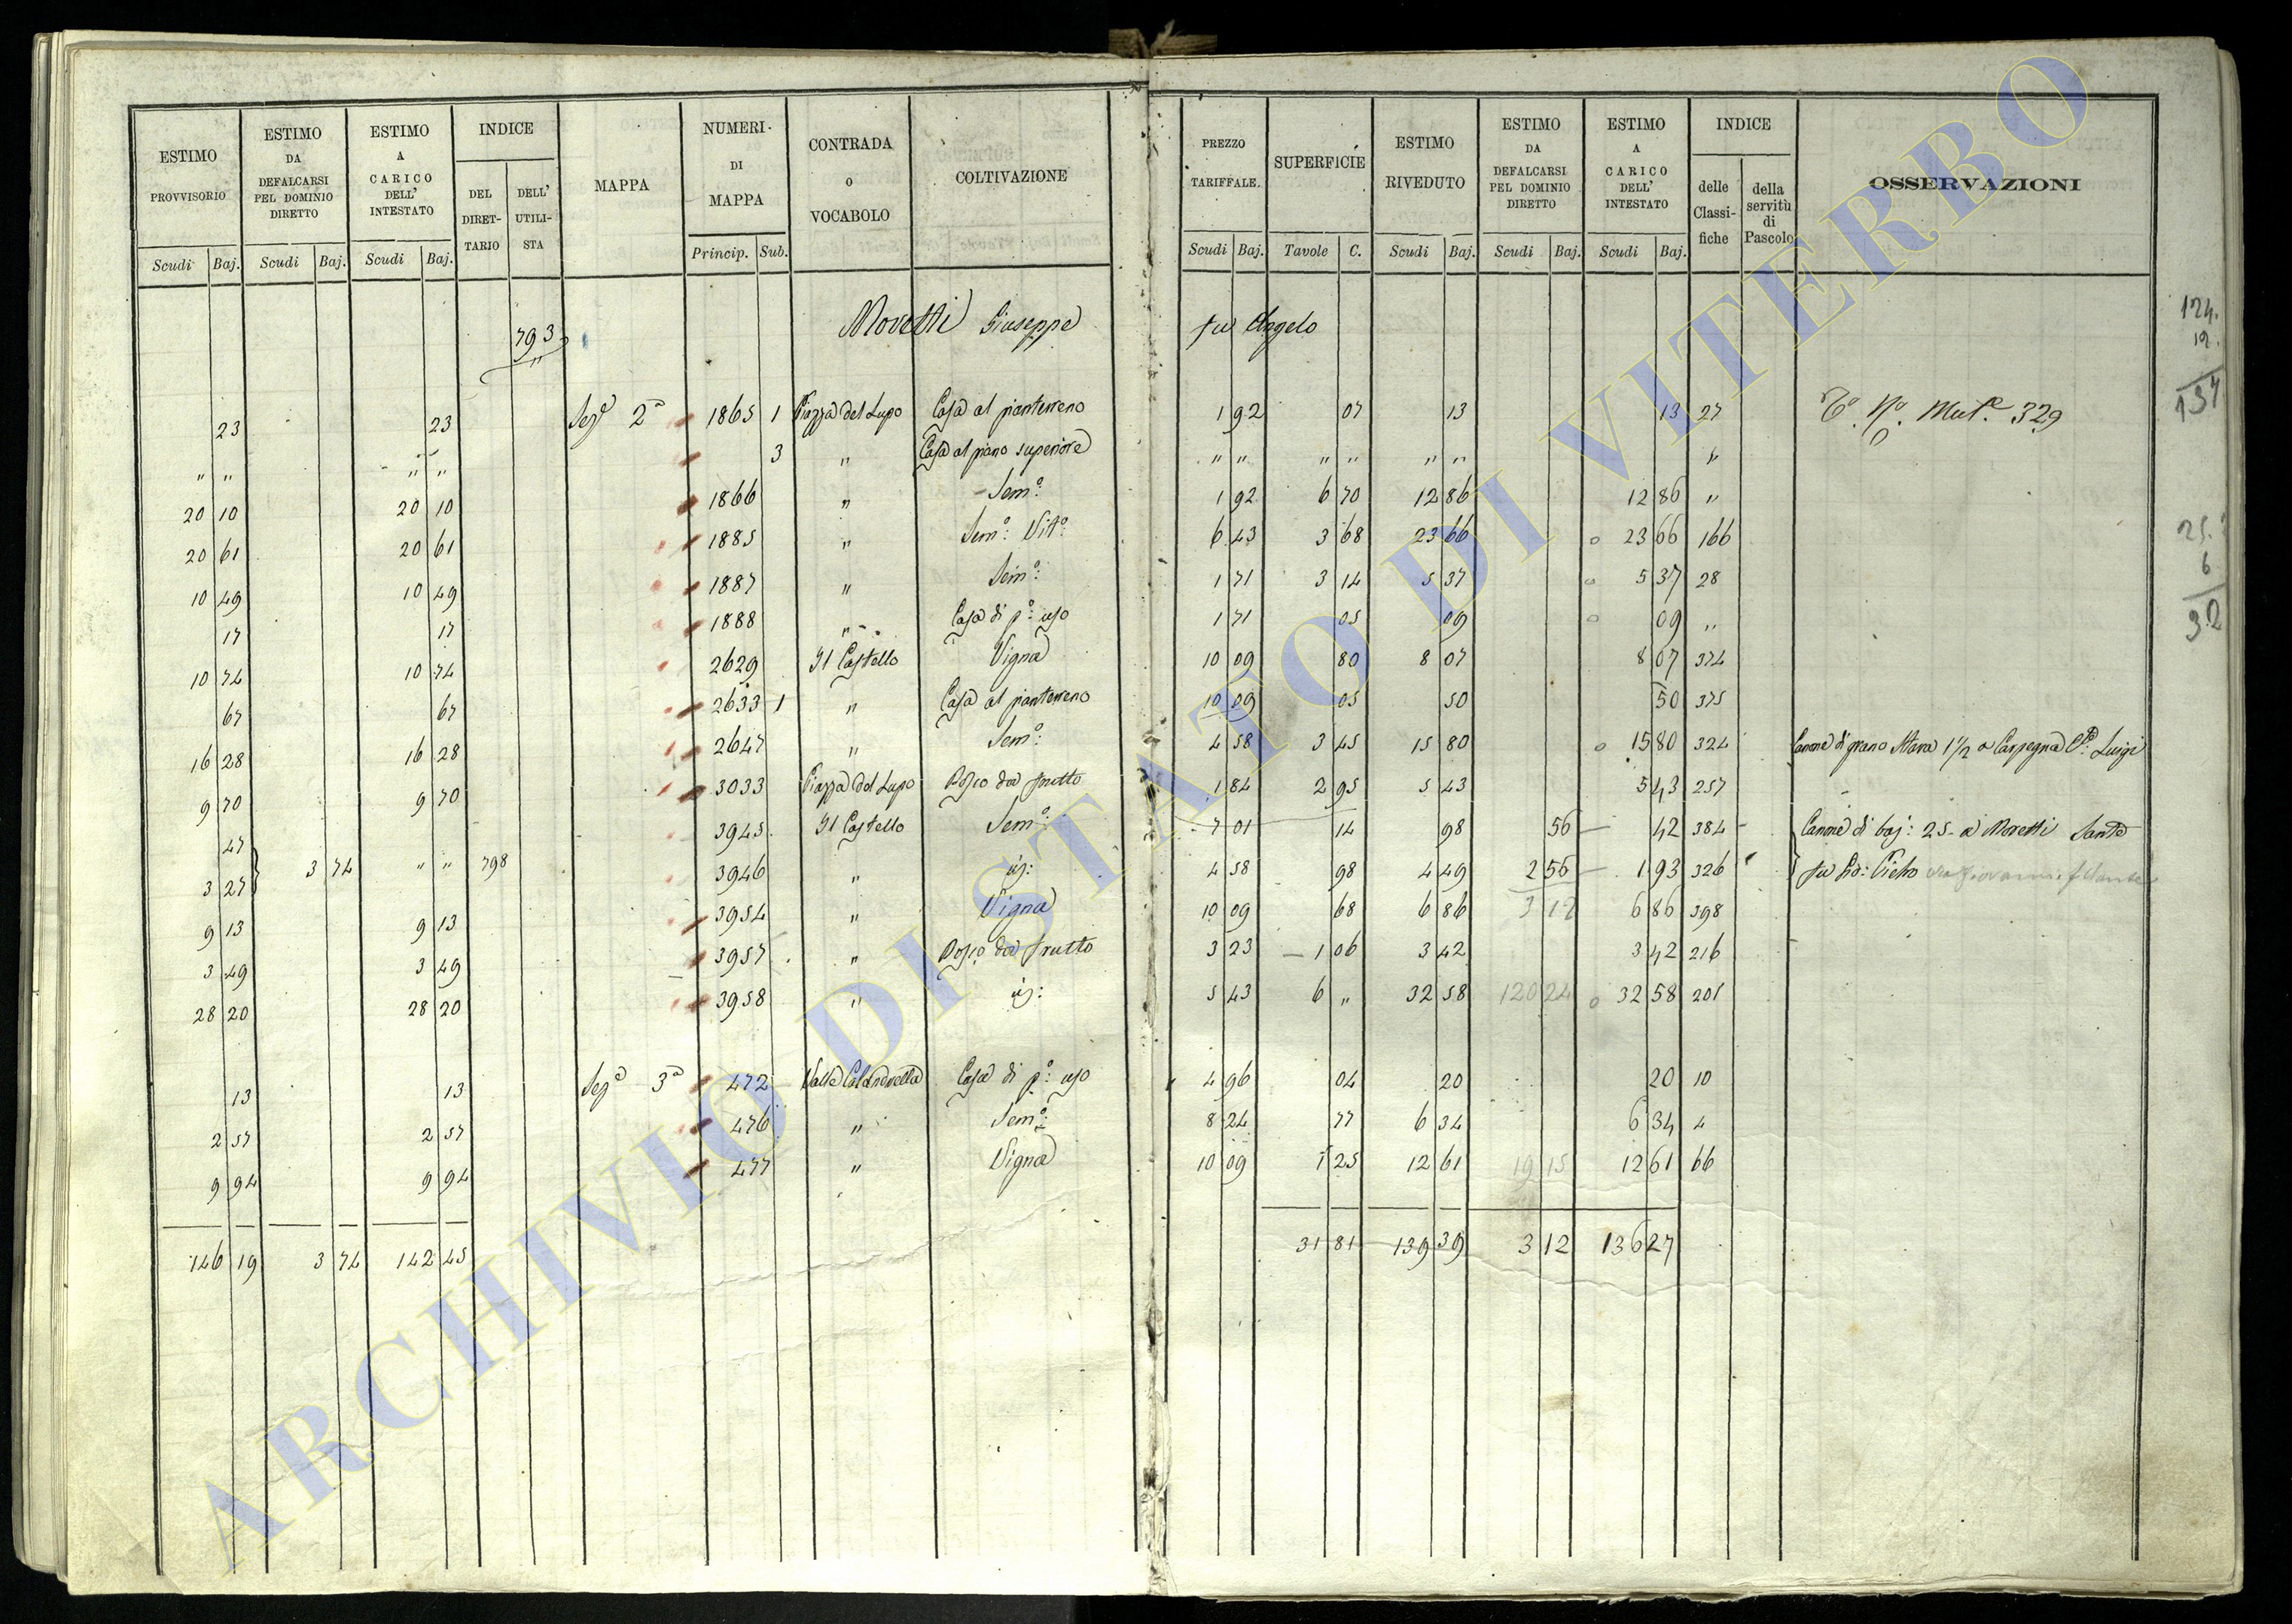 ESTIMO PROVVISORIO Scudi Baj. | ESTIMO DA DEFALCARSI PEL DOMINIO DIRETTO Scudi Baj. | ESTIMO A CARICO DELL' INTESTATO Scudi Baj. | INDICE DEL DIRET-TARIO DELL' UTILI-STA | MAPPA | NUMERI DI MAPPA Princip. Sub. | CONTRADA O VOCABOLO | COLTIVAZIONE | PREZZO TARIFFALE. Scudi Baj. | SUPERFICIE Tavole C. | ESTIMO RIVEDUTO Scudi Baj. | ESTIMO DA DEFALCARSI PEL DOMINIO DIRETTO Scudi Baj. | ESTIMO A CARICO DELL' INTESTATO Scudi Baj. | INDICE delle Classi-fiche della servitù di Pascolo | OSSERVAZIONI
793 Moretti Giuseppe fu Angelo
124.
12.
137
23 23 Sezᵉ 2ª 1865 1 Piazza del Lupo Casa al pianterreno 1 92 07 13 13 27 Mutᵉ 329
" " " " 3 " Casa al piano superiore " " " " " " "
20 10 20 10 1866 " Semº: 1 92 6 70 12 86 12 86 "
20 61 20 61 1885 " Semº: Vitº: 6 43 3 68 23 66 23 66 166
10 49 10 49 1887 " Semº: 1 71 3 14 5 37 5 37 28
17 17 1888 " Casa di pº: uso 1 71 05 09 09 "
6
32
10 74 10 74 2629 Il Castello Vigna 10 09 80 8 07 8 07 374
67 67 2633 1 " Casa al pianterreno 10 09 05 50 50 375
16 28 16 28 2647 " Semº: 4 58 3 45 15 80 15 80 324 Canone di grano Stara 1 1/2 a Carpegna Luigi
9 70 9 70 3033 Piazza del Lupo Bosco da frutto 1 84 2 95 5 43 5 43 257
47 3945 Il Castello Semº: 7 01 14 98 56 42 384 Canone di baj: 25 a Moretti Sante
3 27 3 74 " " 798 3946 " id: 4 58 98 4 49 2 56 1 93 326 fu Gio: Pietro
9 13 9 13 3954 " Vigna 10 09 68 6 86 3 12 6 86 398
3 49 3 49 3957 " Bosco da frutto 3 23 1 06 3 42 3 42 216
28 20 28 20 3958 " id: 5 43 6 " 32 58 120 24 32 58 201
13 13 Sezᵉ 3ª 472 Casa di pº: uso 4 96 04 20 20 10
2 57 2 57 476 " Semº: 8 24 77 6 34 6 34 4
9 94 9 94 477 " Vigna 10 09 1 25 12 61 19 15 12 61 66
146 19 3 74 142 45 31 81 139 39 3 12 136 27
ARCHIVIO DI STATO DI VITERBO